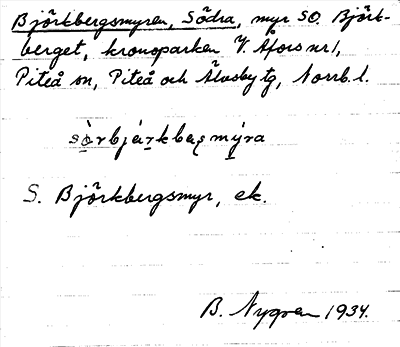 Björkbergsmyren, Södra, myr SO. Björk-
berget, kronoparken V. Åfors nr 1,
Piteå sn, Piteå och Älvsby tg, Norrb. l.
S. Björkbergsmyr, ek.
B. Nygren 1934.